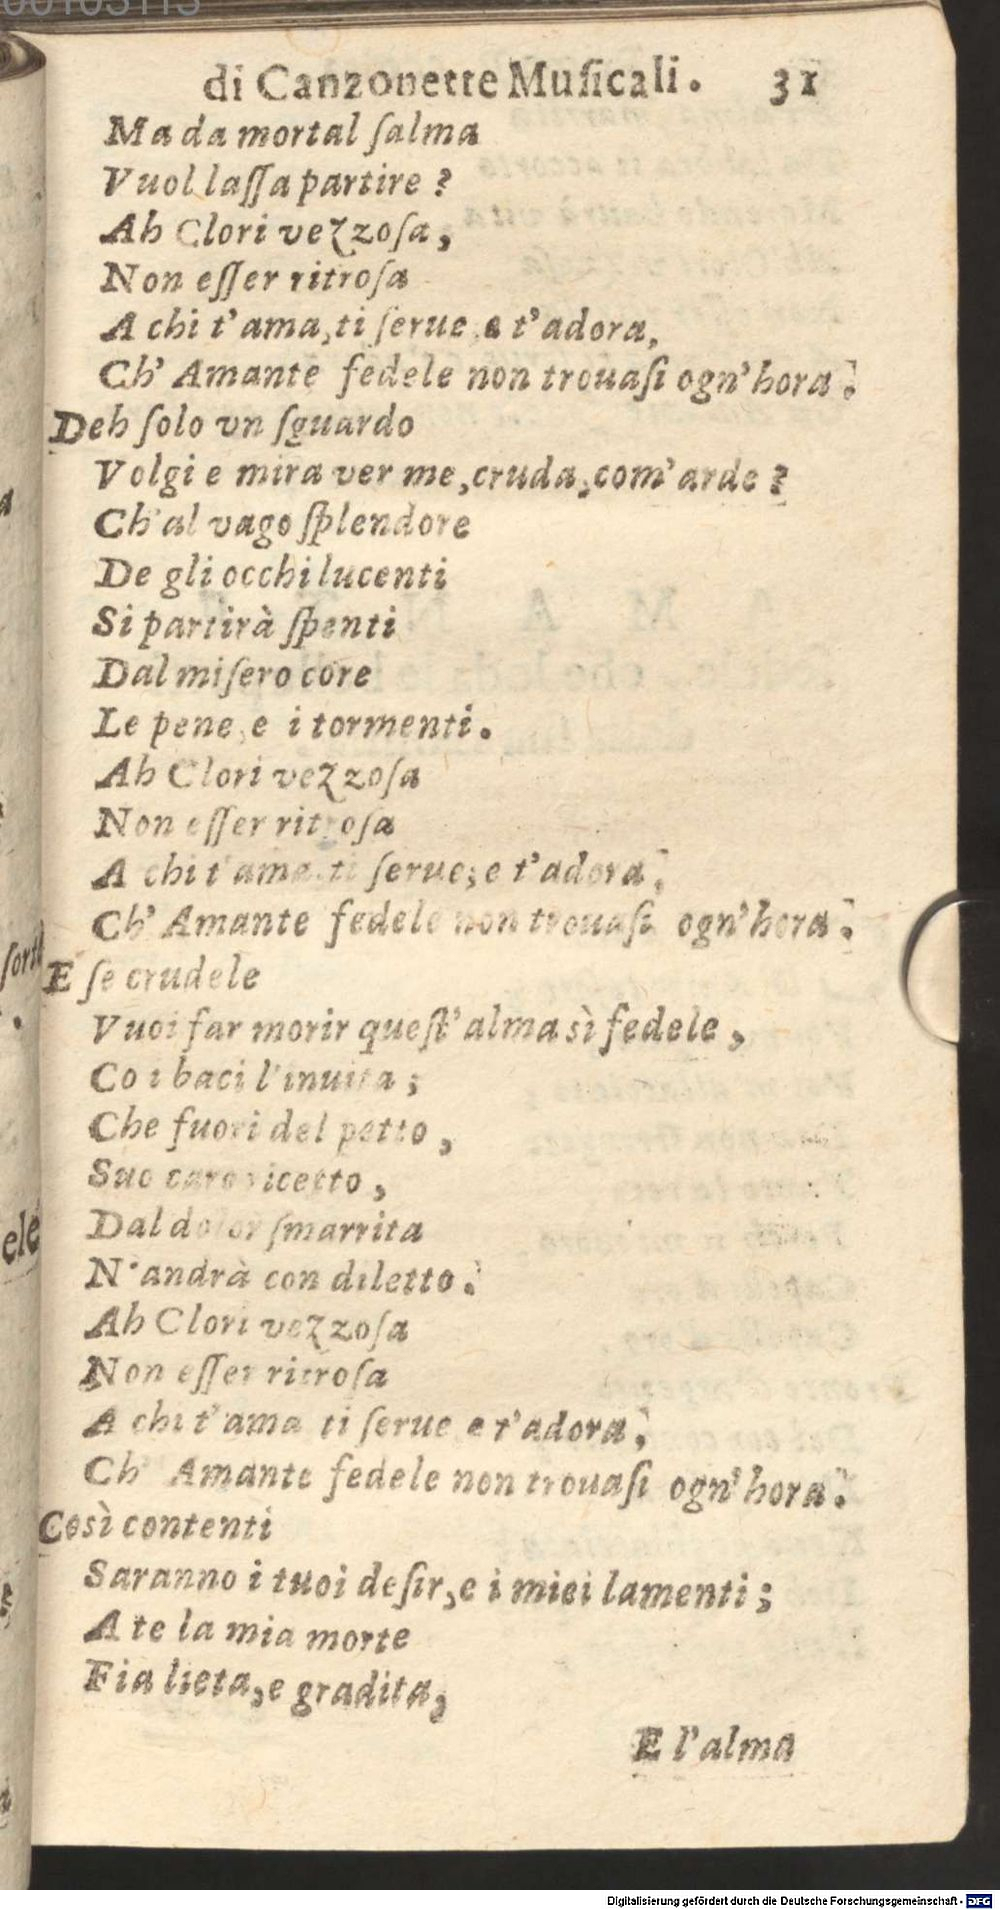 di Canzonette Muſicali. 31
Ma da mortal ſalma
Vuol laſſa partire?
Ah Clori vezzoſa,
Non eſſer ritroſa
A chi t'ama, ti ſerue e t'adora,
Ch' Amante fedele non trouaſi ogn'hora.
Deh ſolo vn ſguardo
Volgi e mira ver me, cruda, com'arde?
Ch'al vago ſplendore
De gli occhi lucenti
Si partirà ſpenti
Dal miſero core
Le pene, e i tormenti.
Ah Clori vezzoſa
Non eſſer ritroſa
A chi t'ama ti ſerue, e t'adora,
Ch' Amante fedele non trouaſi ogn'hora.
E ſe crudele
Vuoi far morir queſt'alma sì fedele,
Co i baci l'inuita;
Che fuori del petto,
Suo caro ricetto,
Dal dolor ſmarrita
N'andrà con diletto.
Ah Clori vezzoſa
Non eſſer ritroſa
A chi t'ama ti ſerue e t'adora,
Ch' Amante fedele non trouaſi ogn'hora.
Così contenti
Saranno i tuoi deſir, e i miei lamenti;
A te la mia morte
Fia lieta, e gradita,
E l'alma
Digitalisierung gefördert durch die Deutsche Forschungsgemeinschaft - DFG